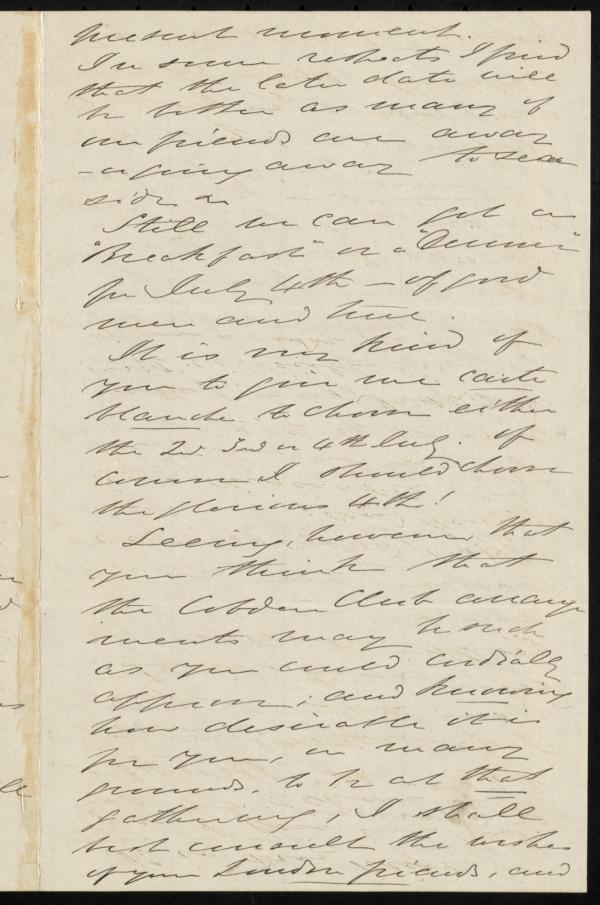 present moment.
In some respects I find
that the later date will
be better as many of
our friends are away
- or going away to sea
side &c
Still we can get a
"Breakfast" or a "Dinner"
for July 4th - of good
men and true.
It is very kind of
you to give me carte
blanche to choose either
the 2nd 3rd or 4th July. Of
course I should choose
the glorious 4th!
Seeing, however, that
you think that
the Cobden Club arrange
ments may be such
as you could cordially
approve; and knowing
how desirable it is
for you, on many
grounds, to be at that
gathering, I shall
best consult the wishes
of your London friends, and